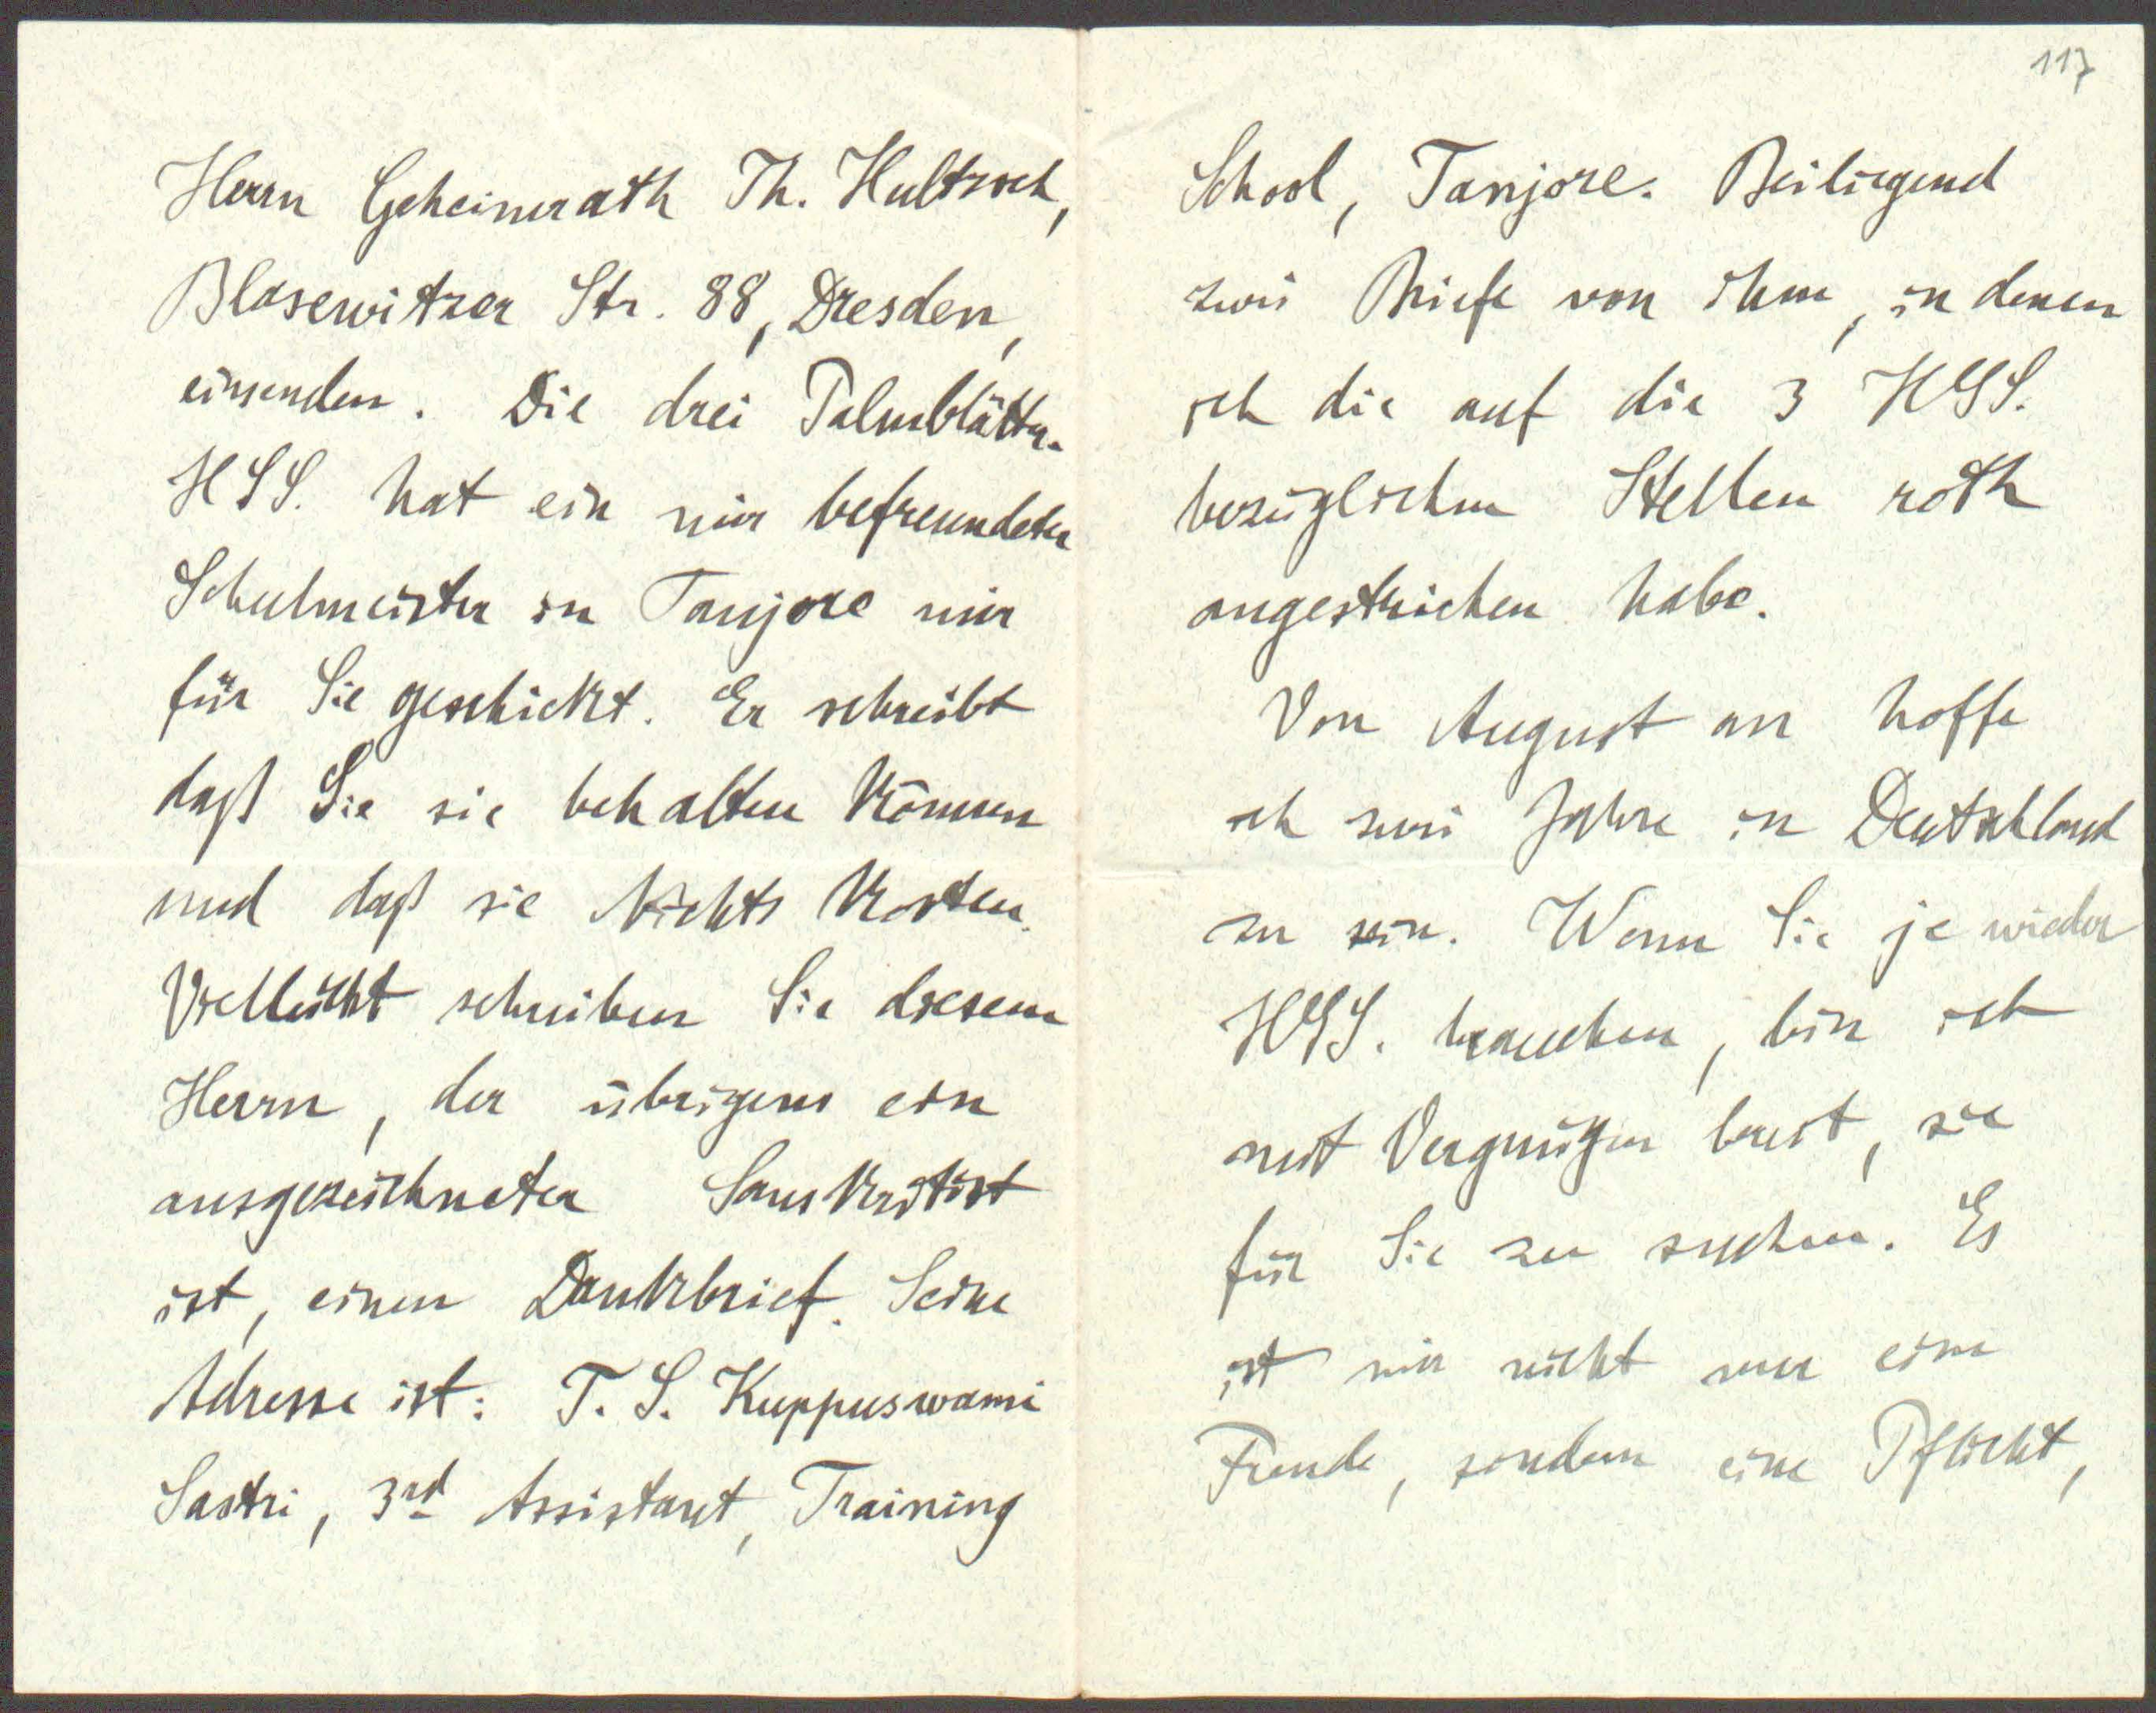 Herrn Geheimrath Th. Hultzsch,
Blasewitzer Str. 88, Dresden,
einsenden. Die drei Palmblätter-
HSS. hat ein mir befreundeter
Schulmeister in Tanjore mir
für Sie geschickt. Er schreibt
daß Sie sie behalten können
und daß sie Nichts kosten.
Vielleicht schreiben Sie diesem
Herrn, der übrigens ein
ausgezeichneter Sanskritist
ist, einen Dankbrief. Seine
Adresse ist: T. S. Kuppuswami
Sastri, 3rd Assistant, Training
117
School, Tanjore. Beiliegend
zwei Briefe von ihm, in denen
ich die auf die 3 HSS.
bezüglichen Stellen roth
angestrichen habe.
Von August an hoffe
ich zwei Jahre in Deutschland
zu sein. Wenn Sie je wieder
HSS. brauchen, bin ich
mit Vergnügen bereit, sie
für Sie zu suchen. Es
ist mir nicht nur eine
Freude, sondern eine Pflicht,